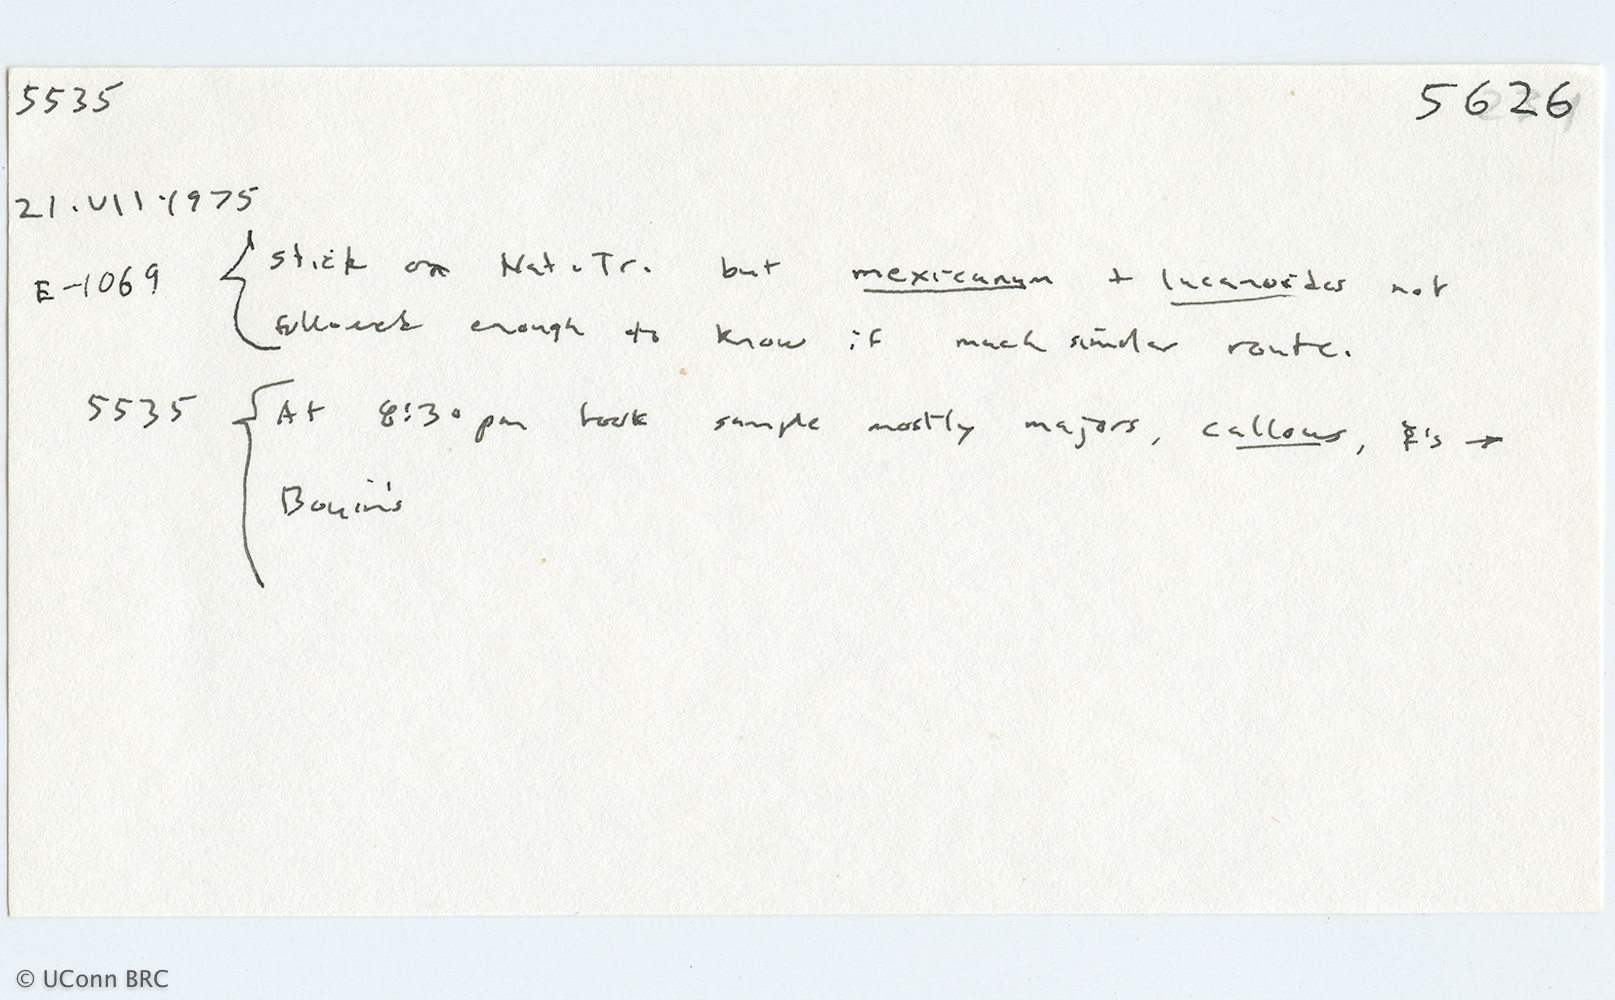 5535 5626
21.VII.1975
E-1069 { stick on Nat. Tr. but mexicanum + lucanoides not
followed enough to know if much similar route.
5535 { At 8:30 pm took sample mostly majors, callows, →
Bouin's
© UConn BRC